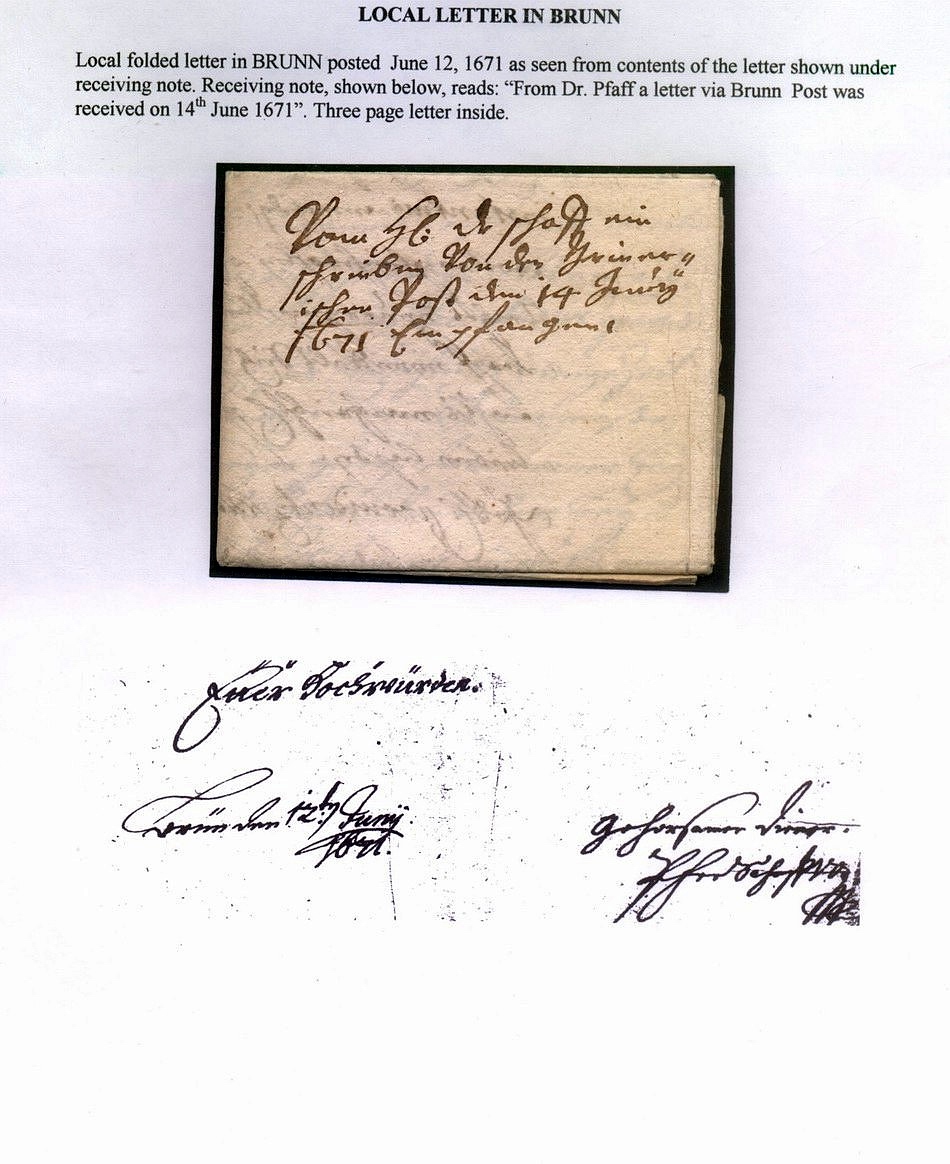 LOCAL LETTER IN BRUNN
Local folded letter in BRUNN posted June 12, 1671 as seen from contents of the letter shown under
receiving note. Receiving note, shown below, reads: “From Dr. Pfaff a letter via Brunn Post was
received on 14th June 1671”. Three page letter inside.
Vom Hl: ein
schreiben Von der Brinner=
ischen Post dem 14 Junÿ
1671 Empfangen
Euer Hochwürden.
Brün den 12ten Junÿ.
1671.
gehorsamer diener.